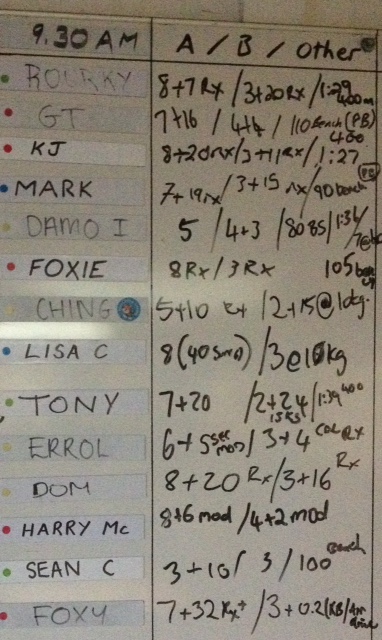 9.30 AM A / B / Other
ROURKY 8+7 Rx / 3+20 Rx / 1:29 400m
GT 7+16 / 4+4 / 110 Bench (PB)
KJ 8+20 rx / 3+11 Rx / 1:27 400
MARK 7+19 rx / 3+15 rx / 90 bench PB
DAMO I 5 / 4+3 / 80 BS / 1:36 /
FOXIE 8 Rx / 3 Rx 105
CHING 5+10 Rx / 2+15 @ 10kg.
LISA C 8 (40 Smod) / 3 @ 10kg
TONY 7+20 / 2+24 / 1:39 400
15 KG
ERROL 6+5 mod / 3+4 Rx
DOM 8+20 Rx / 3+16 Rx
HARRY Mc 8+6 mod / 4+2 mod
SEAN C 3+10 / 3 / 100 Bench
FOXY 7+32 Rx+ / 3+0.2 (KB/